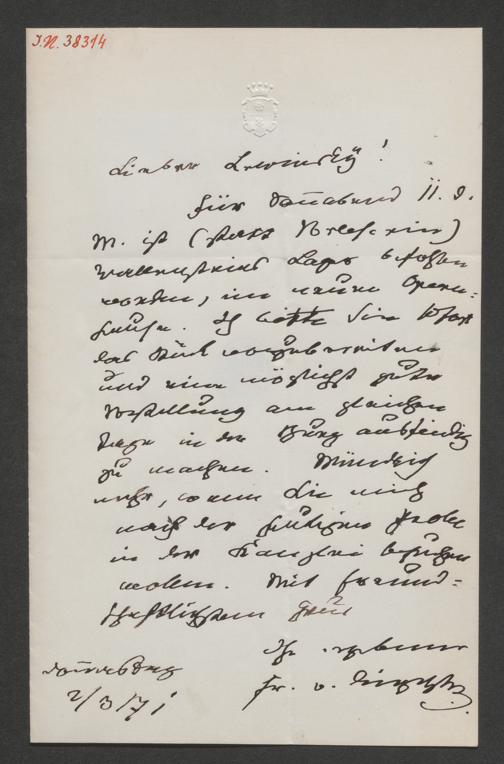 I.N. 38314
Lieber Lewinsky!
Für Sonnabend 11. d.
M. ist (statt Vorleserin)
Wallensteins Lager befohlen
worden, im neuen Opern-
hause. Ich bitte Sie sofort
das Stück vorzubereiten
und eine möglichst gute
Vorstellung am gleichen
Tage in der Burg ausfindig
zu machen. Mündlich
mehr, wenn Sie mich
nach der heutigen Probe
in der Kanzlei besuchen
wollen. Mit freund-
schaftlichstem Gruß
Ihr ergebener
Fr. v. Dingelstedt
Donnerstag
2/3/71